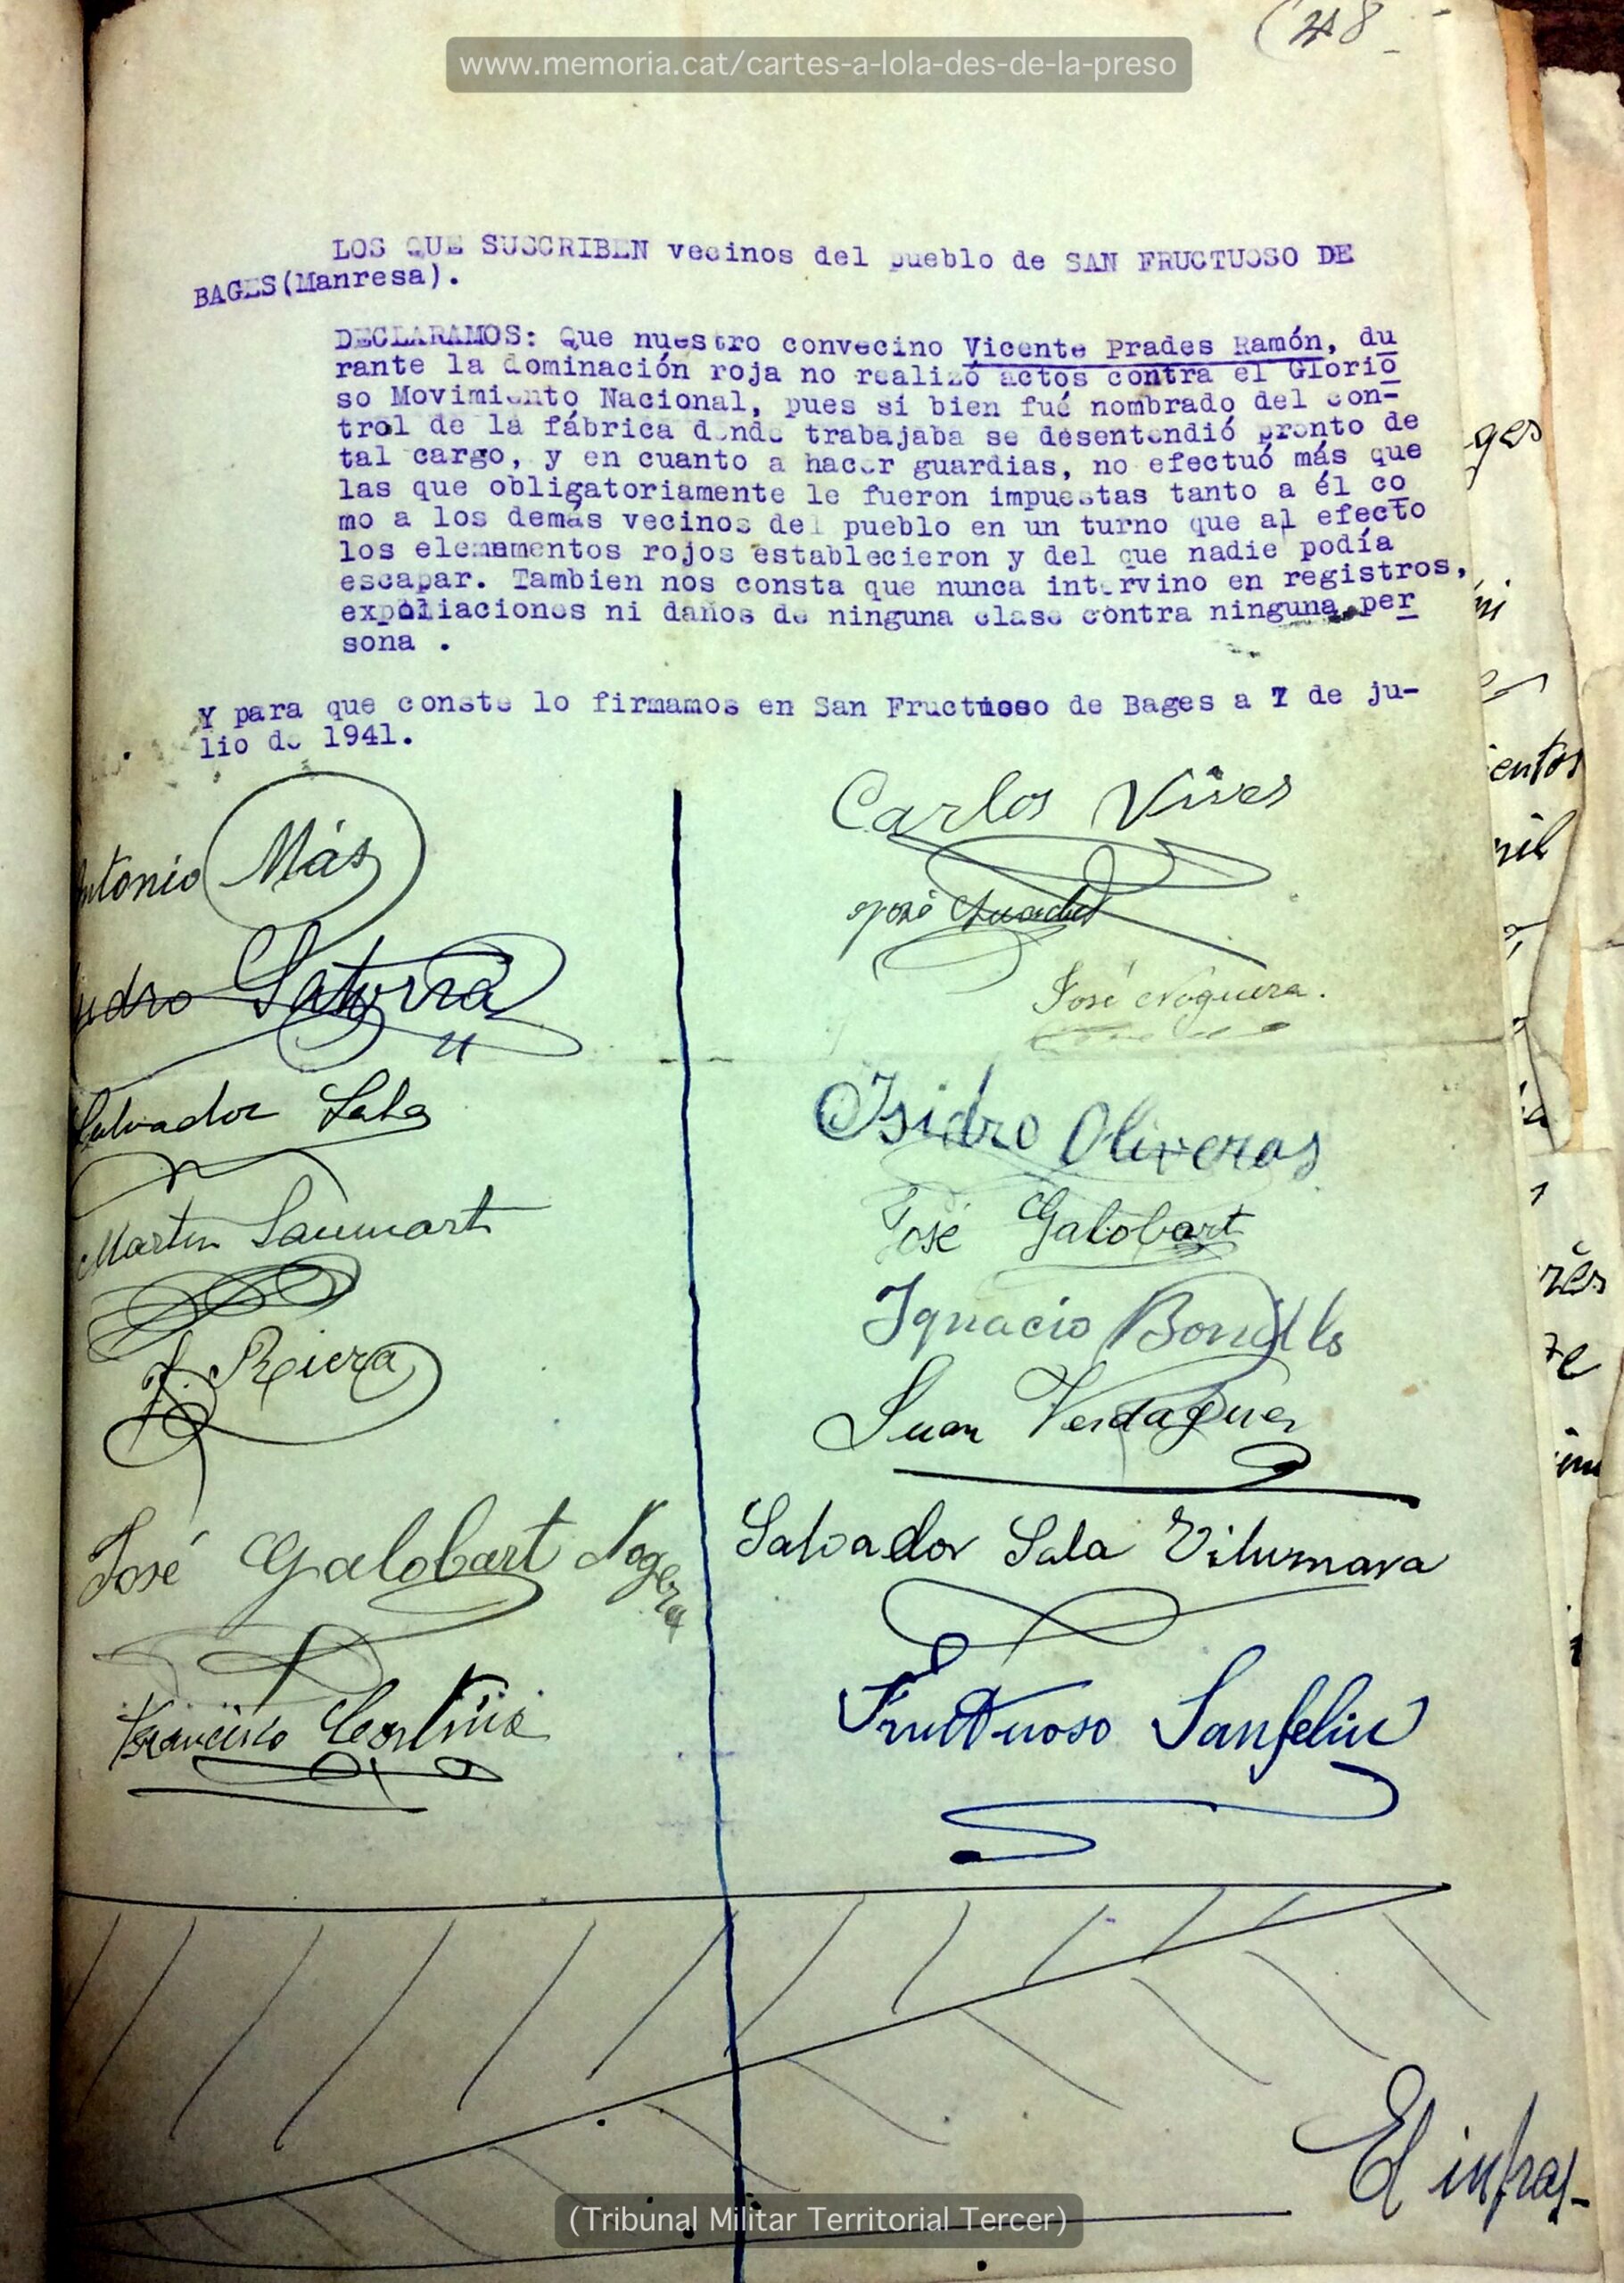 (48
www.memoria.cat/cartes-a-lola-des-de-la-preso
LOS QUE SUSCRIBEN vecinos del pueblo de SAN FRUCTUOSO DE
BAGES(Manresa).
DECLARAMOS: Que nuestro convecino Vicente Prades Ramón, du
rante la dominación roja no realizó actos contra el Glorio
so Movimiento Nacional, pues si bien fué nombrado del con-
trol de la fábrica donde trabajaba se desentendió pronto de
tal cargo, y en cuanto a hacer guardias, no efectuó más que
las que obligatoriamente le fueron impuestas tanto a él co
mo a los demás vecinos del pueblo en un turno que al efecto
los elemementos rojos establecieron y del que nadie podía
escapar. Tambien nos consta que nunca intervino en registros,
expoliaciones ni daños de ninguna clase contra ninguna per
sona .
Y para que conste lo firmamos en San Fructuoso de Bages a 7 de ju-
lio de 1941.
Antonio Más
Carlos Vives
José
José Noguera.
Salvador Sala
Isidro Oliveras
Martin Sanmarti
José Galobart
J. Riera
Ignacio
Juan Verdaguer
José Galobart Nogera
Salvador Sala Vilumara
Francisco
Fructuoso Sanfeliu
El infras-
(Tribunal Militar Territorial Tercer)
ges
ni
entos
mil
rés
te